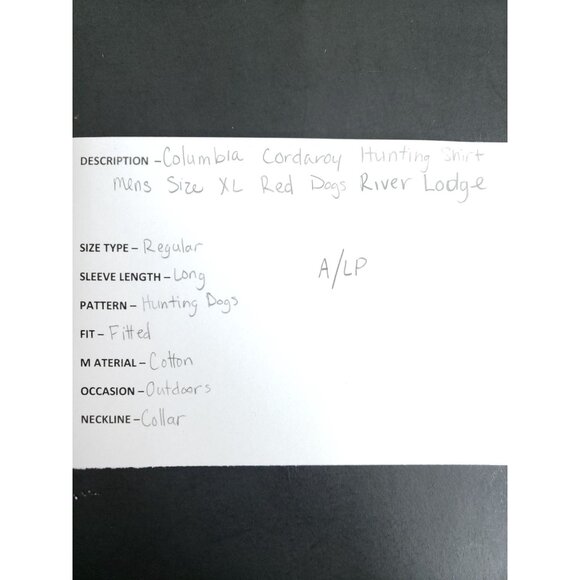 DESCRIPTION - Columbia Cordaroy Hunting Shirt
Mens Size XL Red Dogs River Lodge
SIZE TYPE - Regular
SLEEVE LENGTH - Long
A/LP
PATTERN - Hunting Dogs
FIT - Fitted
MATERIAL - Cotton
OCCASION - Outdoors
NECKLINE - Collar